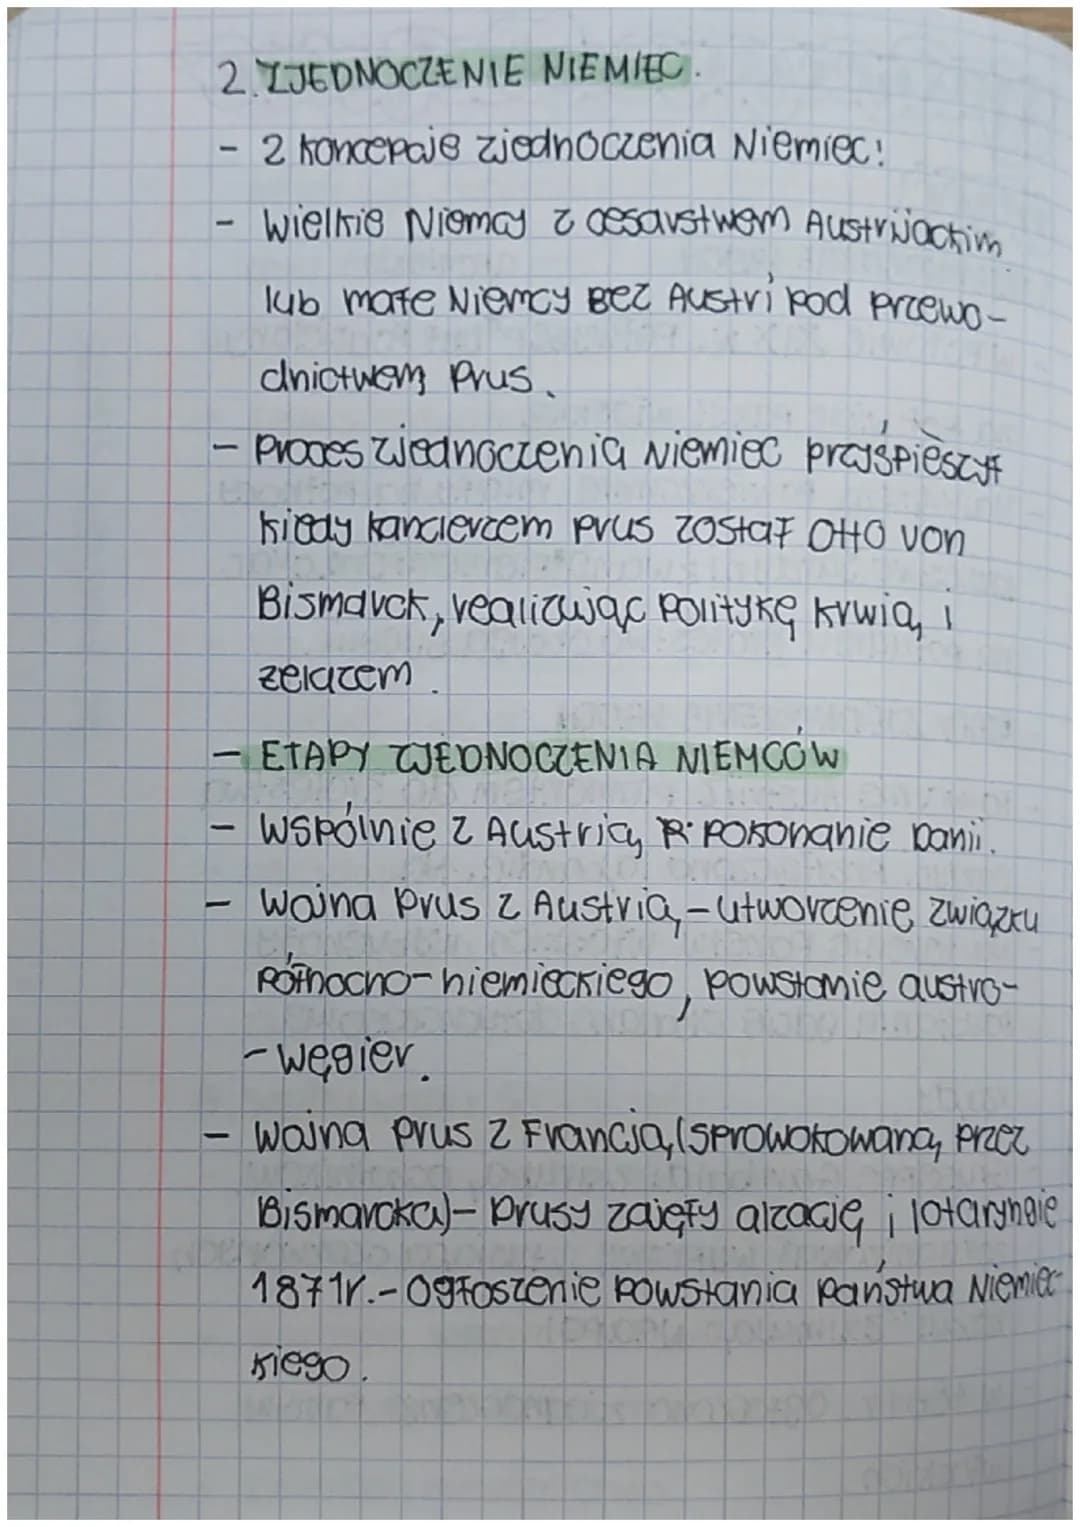 2. ZJEDNOCZENIE NIEMIEC.
- 2 koncepcje zjednoczenia Niemiec:
- Wielkie Niemcy z cesarstwem Austrijackim
lub małe Niemcy BEZ Austri pod przewo-
dnictwem Prus.
- proces zjednoczenia Niemiec przyśpieszył
kiedy kanclerzem Prus został Otto von
Bismarck, realizując politykę krwią i
żelazem.
- ETAPY ZJEDNOCZENIA NIEMCÓW
- Wspólnie z Austrią pokonanie Danii.
- Wojna Prus z Austrią - utworzenie związku
Północno-niemieckiego, powstanie austro-
-węgier.
- Wojna Prus z Francją (sprowokowaną przez
Bismarcka) - Prusy zajęły alzację i lotaryngie
1871r. - Ogłoszenie powstania państwa Niemiec-
kiego.